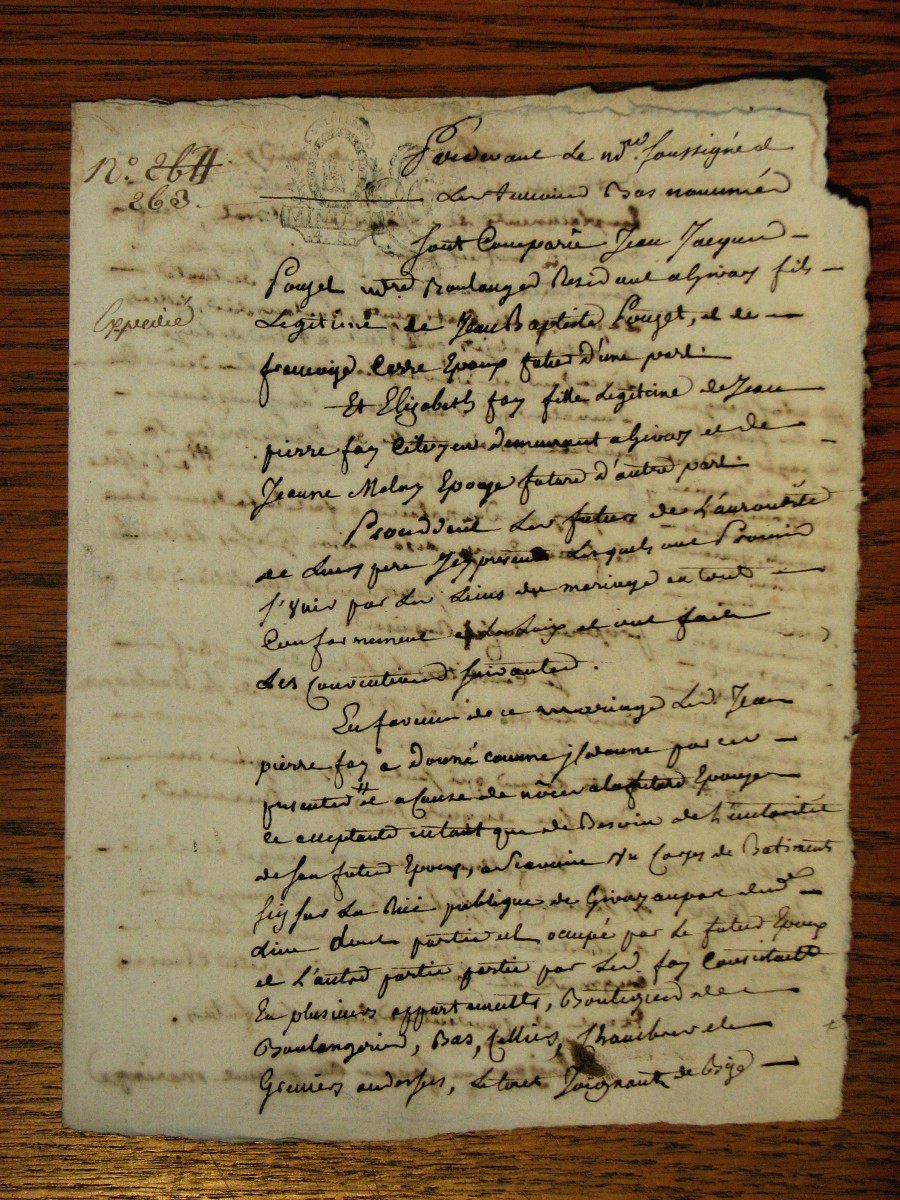 N.° 264
263.
Expedié
Pardevant Le nre. Soussigné et
Les temoins Bas nommés
Sont Comparu Jean Jacques
Pouzet mtre Boulanger Residant a Givors fils
Legitime de Jean Baptiste Pouzet, et de
francoise Carre Epoux futur d'une part.
Et Elizabeth fay fille Legitime de Jean
pierre fay Citoyen demeurant a Givors et de
Jeanne Melay Epouse future d'autre part.
Procedent Les futurs de L'authorité
de Leurs pere presents Lesquels ont Promis
s'unir par Les Liens du mariage en tout
Conformement aux Loix et ont fait
Les Conventions suivantes.
En faveur de ce mariage Led. Jean
pierre fay a donné comme il donne par ces
presentes et a Cause de nôces a la future Epouse
ce acceptante entant que de Besoin de L'autorité
de son futur Epoux, a un Corps de Batiments
sis sur La Rue publique de Givors aupres dud.
Lieu dont partie est occupé par Le futur Epoux
et L'autre partie partie par Led. fay Consistant
En plusieurs appartements, Boutiques de
Boulangerie, Bas, Celliers, Chambres et
Greniers audessus, Le tout Joignant de Bize